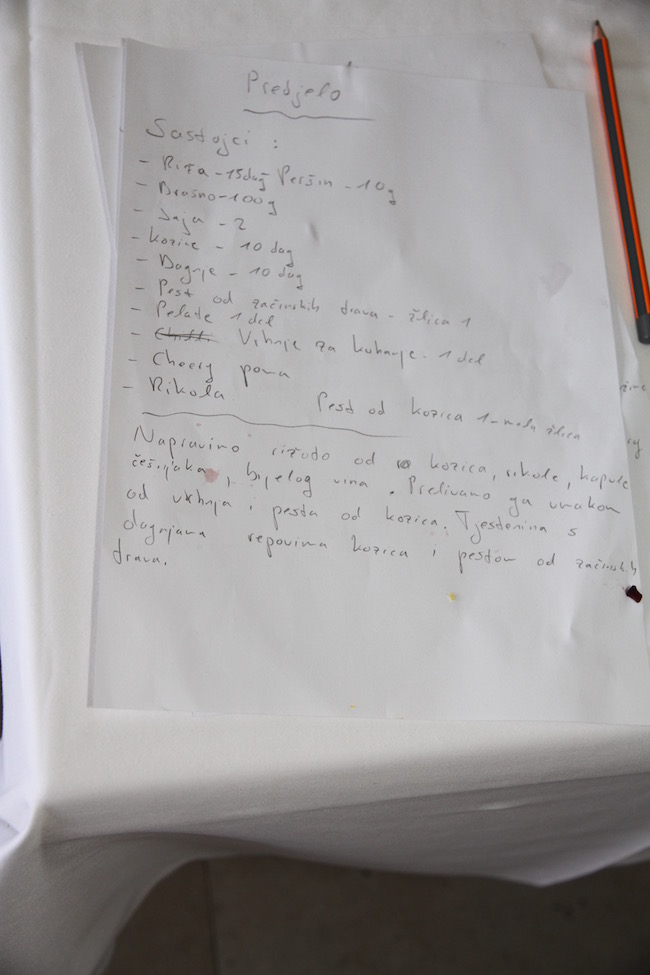 Predjelo
Sastojci :
- Riža - 15dag Peršin - 10g
- Brašno - 100g
- Jaja - 2
- Kozice - 10 dag
- Dagnje - 10 dag
- Pest od začinskih trava - žlica 1
- Pelate 1 dcl
- Vrhnje za kuhanje - 1 dcl
- Cherry poma
- Rikola
Pest od kozica 1 - mala žlica
Napravimo rižoto od kozica, rikole, kapule
češnjaka, bijelog vina. Prelivamo ga umakom
od vrhnja i pesta od kozica. Tjestenina s
dagnjama repovima kozica i pestom od začinskih
trava.